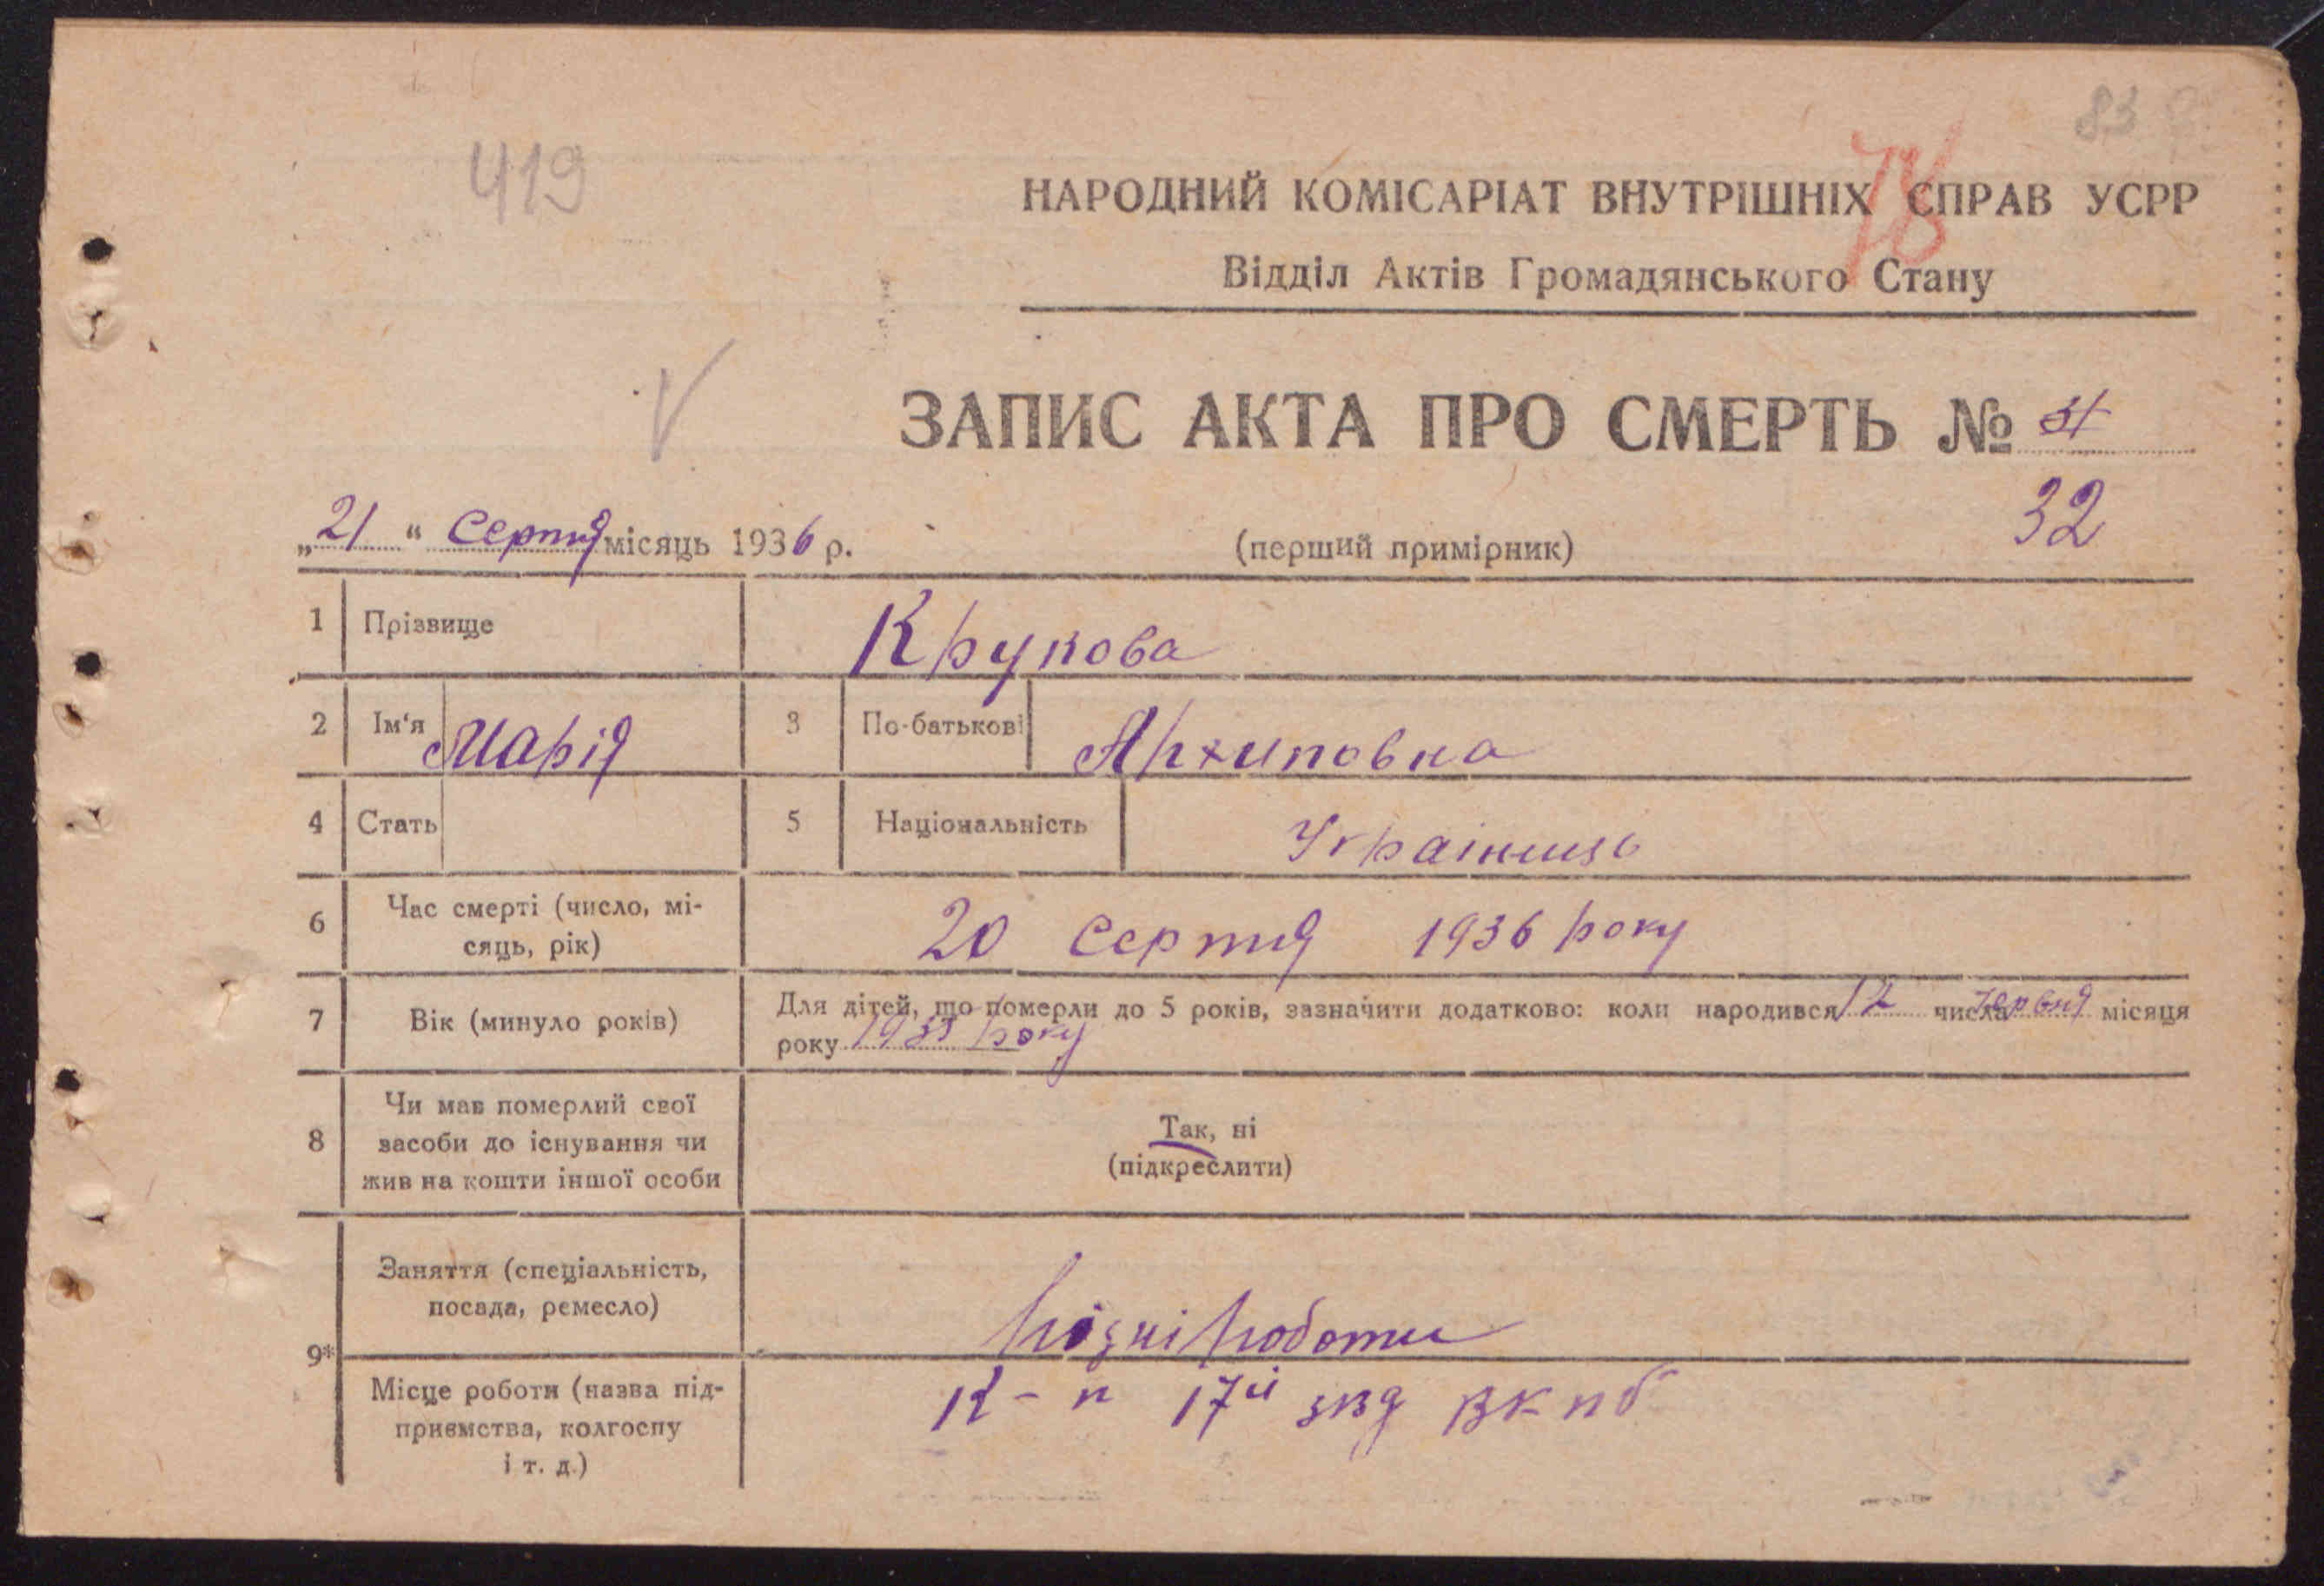 83
419
78
НАРОДНИЙ КОМІСАРІАТ ВНУТРІШНІХ СПРАВ УСРР
Відділ Актів Громадянського Стану
V
ЗАПИС АКТА ПРО СМЕРТЬ № 31
32
„21“ Серпня місяць 1936 р. (перший примірник)
1 Прізвище Крукова
2 Ім‘я Марія 3 По-батькові Архиповна
4 Стать 5 Національність
6 Час смерті (число, мі-
сяць, рік) 20 Серпня 1936 року
7 Вік (минуло років) Для дітей, що померли до 5 років, зазначити додатково: коли народився 12 числа червня місяця
року 1935 року
8 Чи мав померлий свої
засоби до існування чи
жив на кошти іншої особи
Так, ні
(підкреслити)
9* Заняття (спеціальність,
посада, ремесло) різні роботи
Місце роботи (назва під-
приємства, колгоспу
і т. д.)
К-п 17й зїзд ВКПб